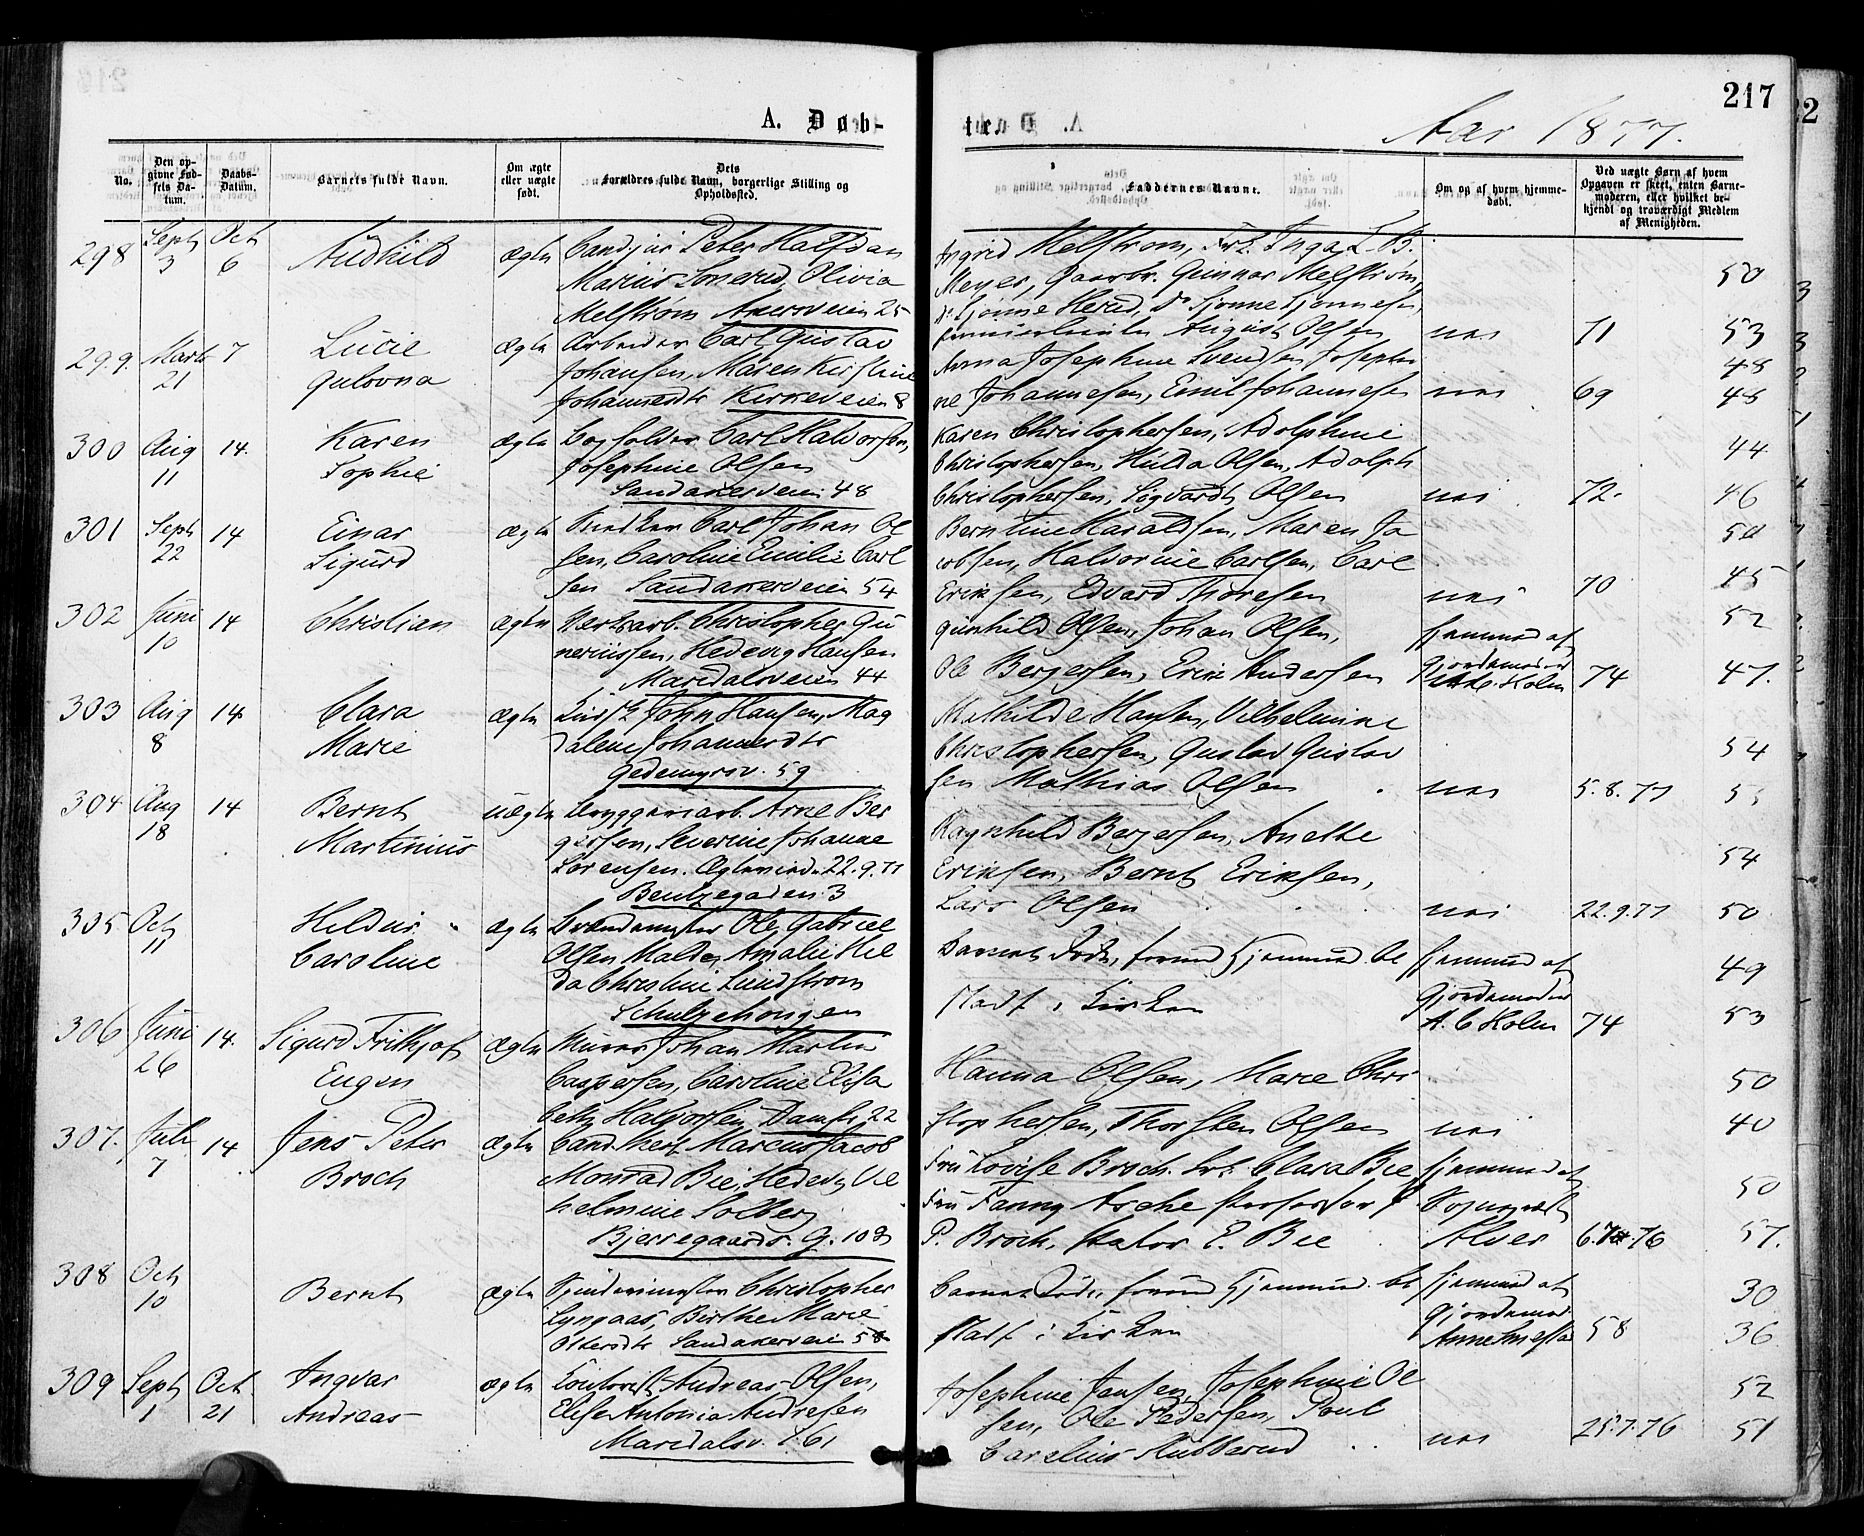 217
A. Døb-
te.
Aar 1877.
No.
Den op-
givne Fød-
sels Da-
tum.
Daabs-
Datum.
Barnets fulde Navn.
Om ægte
eller uægte
født.
Dets
Forældres fulde Navn, borgerlige Stilling og
Opholdssted.
Faddernes Navne.
Om og af hvem hjemme-
døbt.
Ved uægte Børn af hvem
Opgaven er skeet, enten Barne-
moderen, eller hvilket be-
kjendt og troværdigt Medlem
af Menigheden.
298 Sept 3 Oct 6 Audhild ægte Cand jur Peter Halfdan
Marius Olivia
Melstrøm Akersveien 25
Ingrid Melstrøm, Frk. Inga L. B.
Meyer, Gaardbr. Gunnar Melstrøm,
August Olsen nei 71
50
53
299. Marts 21 7 Lucie
Gulovna
ægte Arbeider Carl Gustav
Johansen, Maren Kirstine
Johannesdtr Kirkeveien 8
Anna Josephine Svendsen, Josephi
ne Johannesen, Emil Johannesen nei 69
48
48
300 Aug 11 14. Karen
Sophie
ægte Carl Halvorsen,
Josephine Olsen
Sandakerveien 48
Karen Christophersen, Adolphine
Christophersen, Hulda Olsen, Adolph
Christophersen, Sigvardt Olsen nei 72.
44
46
301 Sept 22 14 Einar
Sigurd
ægte Snedker Carl Johan Ol
sen, Caroline Emilie Carl
sen Sandakerveien 54
Berntine Haraldsen, Maren Ja
cobsen, Halvorine Carlsen, Carl
Eriksen, Edvard Thoresen nei 70
50
45
302 Juni 10 14 Christian ægte Værksarb. Christopher Gu
neriussen, Hedevig Hansen
Maridalsveien 44
Gunhild Olsen, Johan Olsen,
Ole Bergersen, Erik Andersen
hjemmed af
Gjordemoder
A. C. Holm 74
52
47.
303 Aug 8 14 Clara
Marie
ægte Kudsk John Hansen, Mag
dalene Johannesdtr
Gedemyrsv. 59
Mathilde Hansen, Vilhelmine
Christophersen, Gustav Gustav
sen Mathias Olsen nei 5.8.77
54
304 Aug 18 14 Bernt
Martinius
uægte Bryggeriarb. Arne Ber
gersen, Severine Johanne
Sørensen. Ægteviede 22.9.77
Bentzegaden 3
Ragnhild Bergersen, Anette
Eriksen, Bernt Eriksen,
Lars Olsen nei 22.9.77
54
50
305 Oct 11 Hildur
Caroline
ægte Ole Gabriel
Olsen Malde, Amalie Hil
da Christine Lundstrøm
Schultzehougen
Barnet død, forend Hjemmed. be
stadf i Kirken
hjemmed af
Gjordemoder
A. C Holm 74
49
53
306 Juni 26 14. Sigurd Frithjof
Eugen
ægte Murer Johan Martin
Caspersen, Caroline Elisa
beth Halvorsen, Damstr. 22
Hanna Olsen, Marie Chri
stophersen, Thorsten Olsen nei
50
40
307. Juli 7 14 Jens Peter
Broch
ægte Cand. Marcus Jacob
Monrad Bie, Hedevig Vil
helmine Solberg
Bjerregaards. G. 10
Fru Lovise Broch, Frk Clara Bie,
Fru Fanny Asche Professor J.
P. Broch, E. Bie
hjemmed af
Sognepræst
Alver 76
50
57.
308 Oct 10 Bernt ægte Spinderimester Christopher
Lyngaas, Birthe Marie
Ottersdtr Sandakerveien 58
Barnet død, forend Hjemmed. be
stadf i Kirken
hjemmed af
Gjordemod. 58
30
36
309 Sept 1 Oct. 21 Ingvar
Andreas
ægte Andreas Olsen,
Elise Antonia Andresen
Maridalsv. 161
Josephine Jansen, Josephine Ol
sen, Ole Pedersen, Poul
Carelius Stubberud nei 25.7.76
52
51